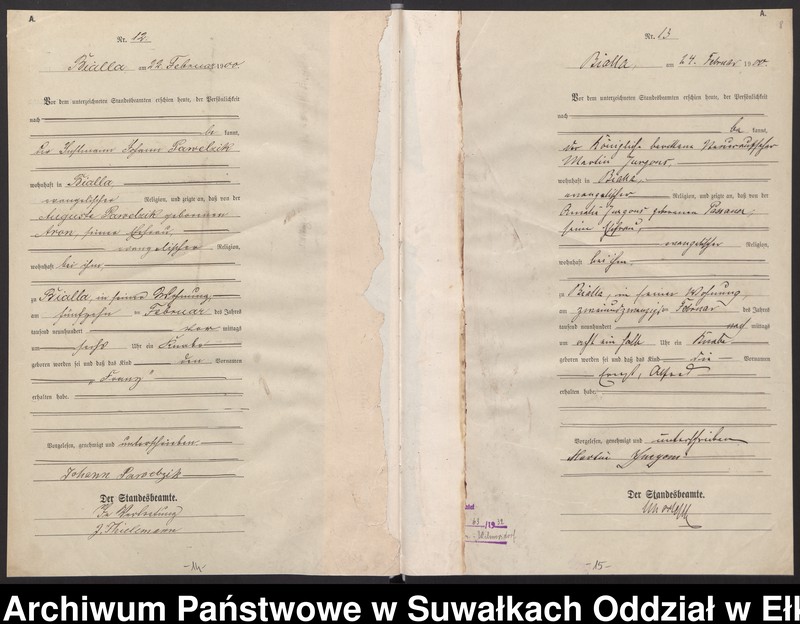 A.
Nr. 12.
Bialla am 22 Februar 1900.
Vor dem unterzeichneten Standesbeamten erschien heute, der Persönlichkeit
nach
be kannt,
Johann Pawelzik
wohnhaft in Bialla,
evangelischer Religion, und zeigte an, daß von der
Auguste Pawelzik geborenen
seiner Ehefrau,
evangelischer Religion,
wohnhaft bei ihm,
zu Bialla, in seiner Wohnung,
am fünfzehn ten Februar des Jahres
tausend neunhundert vor mittags
um sechs Uhr ein Knabe
geboren worden sei und daß das Kind den Vornamen
„Franz"
erhalten habe.
Vorgelesen, genehmigt und unterschrieben.
Johann Pawelzik
Der Standesbeamte.
In Vertretung
J. Thielemann
-14-
A.
Nr. 13
Bialla, am 24. Februar 1900.
Vor dem unterzeichneten Standesbeamten erschien heute, der Persönlichkeit
nach
be kannt,
der Königliche berittene Steueraufseher
Martin Jurgons,
wohnhaft in Bialla,
evangelischer Religion, und zeigte an, daß von der
Jurgons geborenen
seiner Ehefrau,
evangelischer Religion,
wohnhaft bei ihm,
zu Bialla, in seiner Wohnung,
am zweiundzwanzigsten Februar des Jahres
tausend neunhundert nach mittags
um acht ein halb Uhr ein Knabe
geboren worden sei und daß das Kind die Vornamen
Ernst, Alfred
erhalten habe.
Vorgelesen, genehmigt und unterschrieben
Martin Jurgons
Der Standesbeamte.
-15-
Archiwum Państwowe w Suwałkach Oddział w Ełk